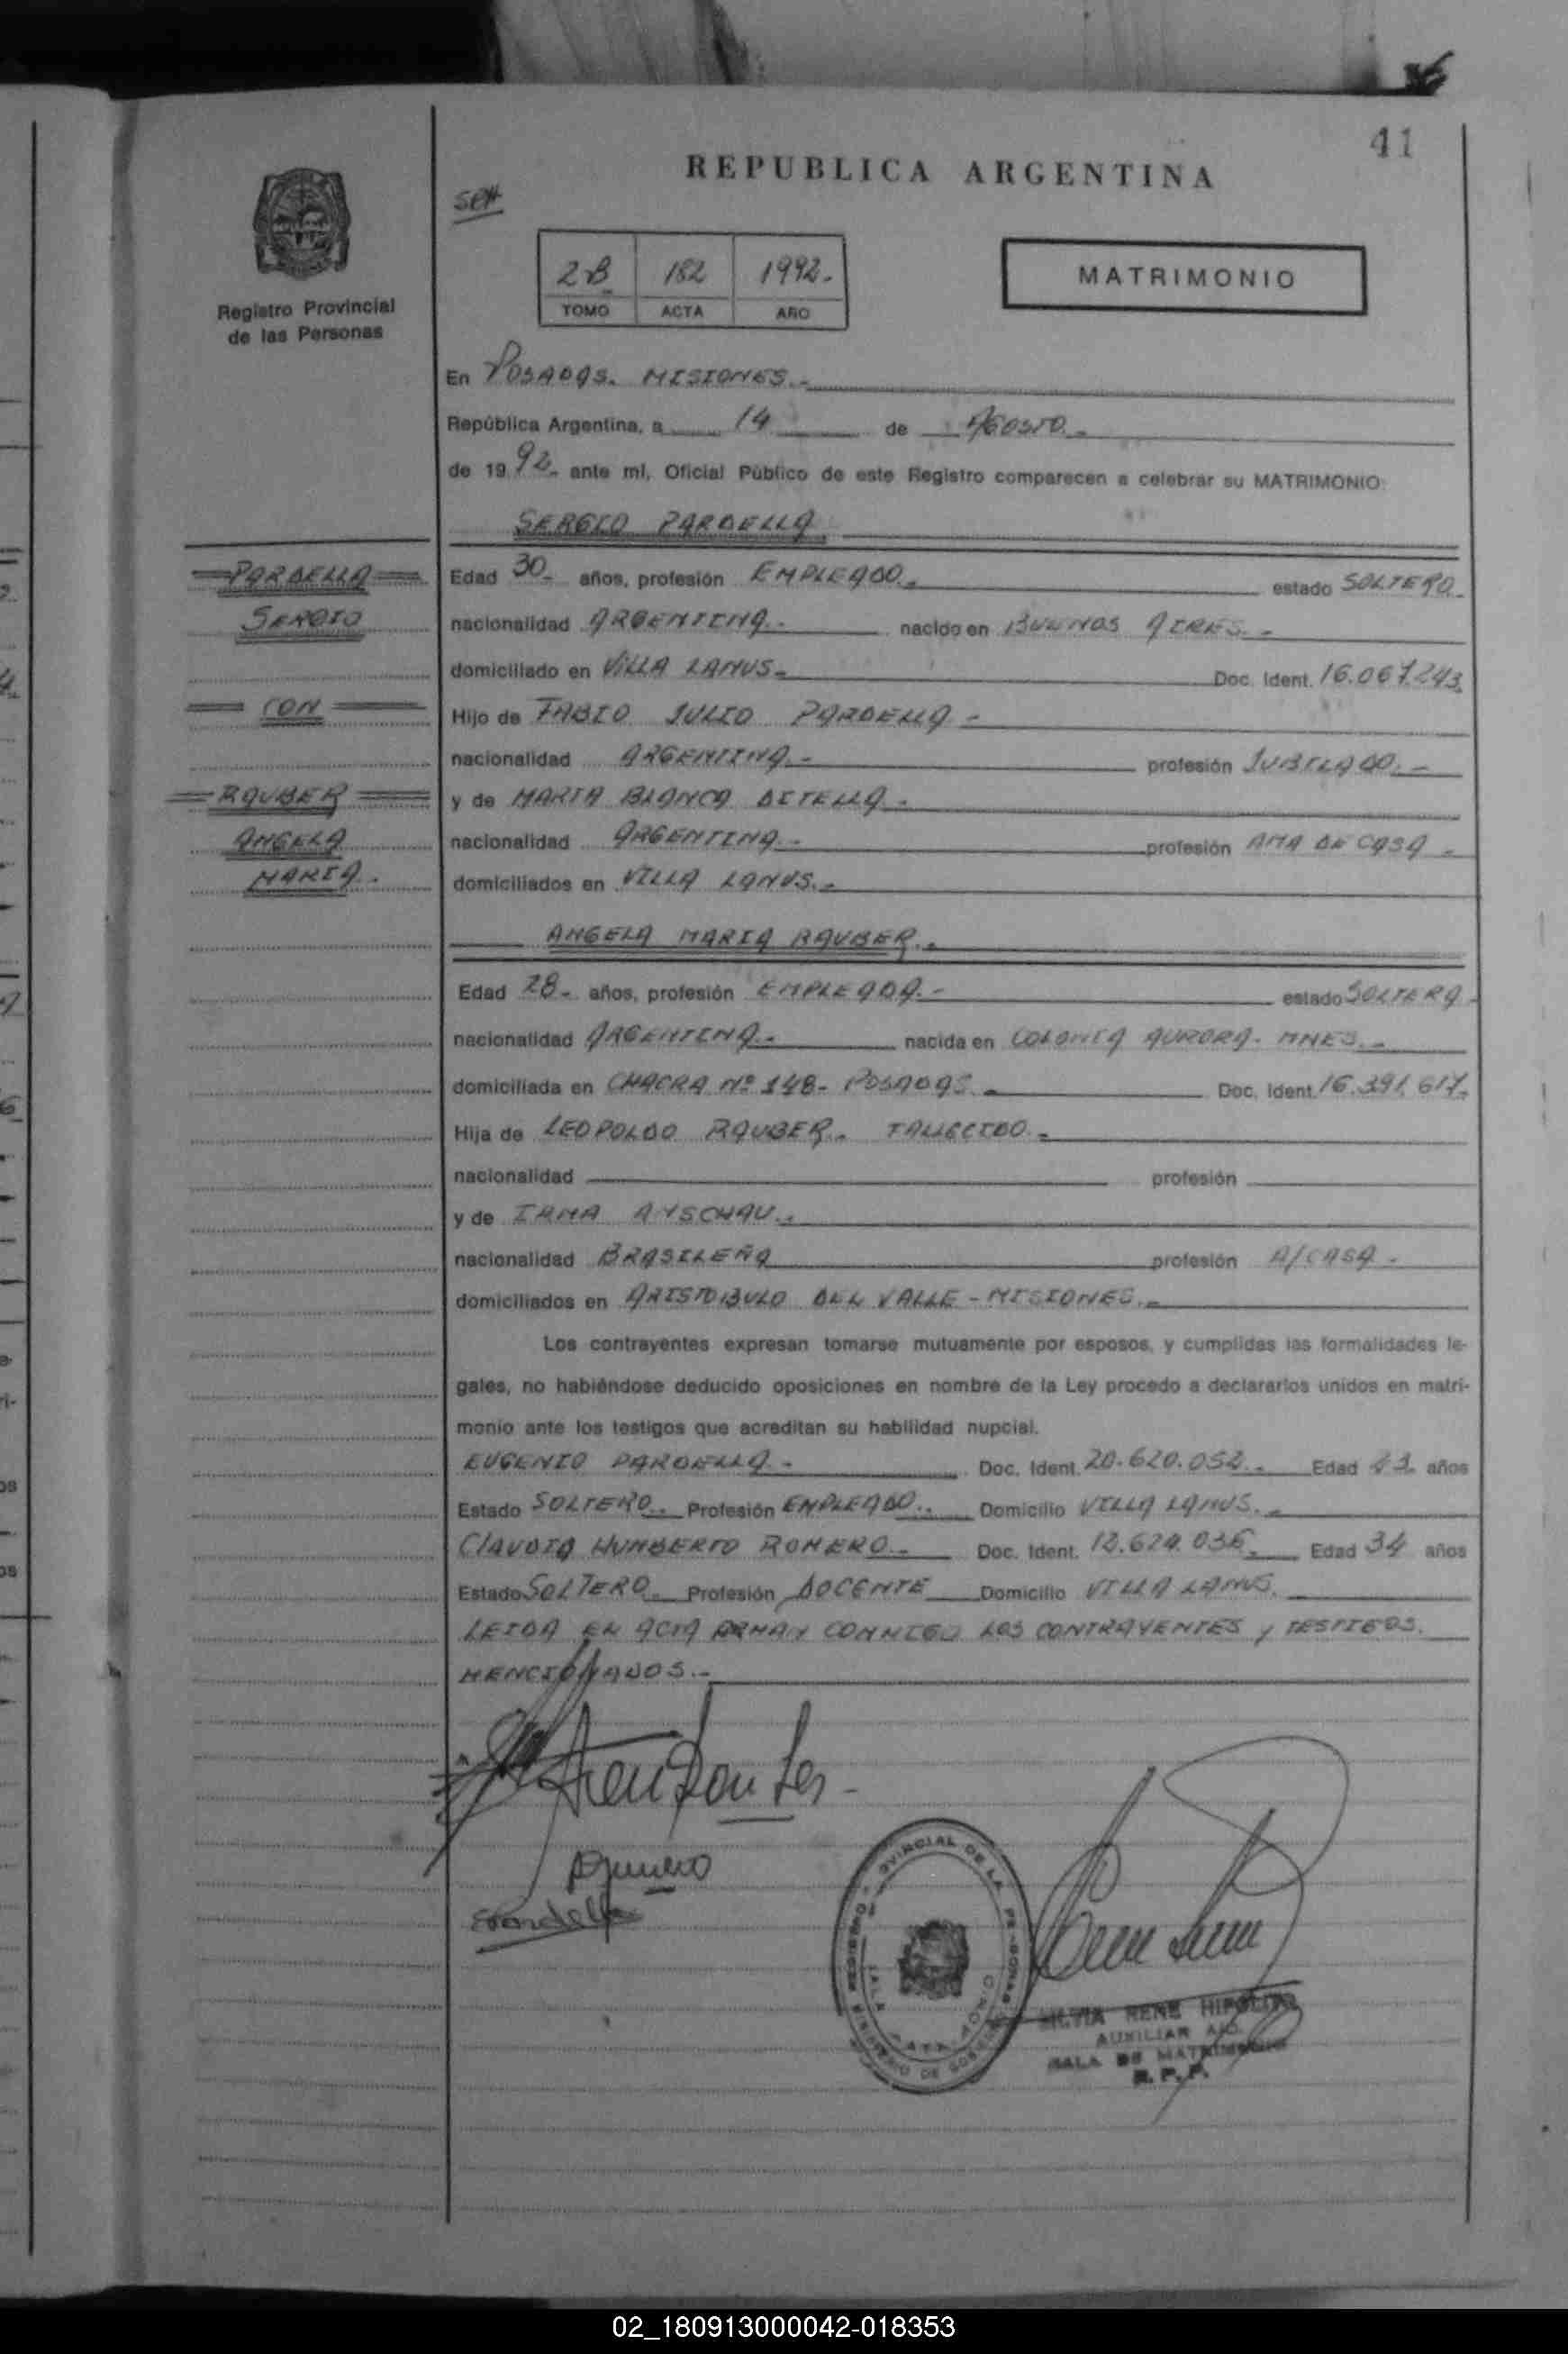 41
REPUBLICA ARGENTINA
Registro Provincial
de las Personas
2B 182 1992.-
TOMO ACTA AÑO
MATRIMONIO
En POSADAS. MISIONES.-
República Argentina, a 14 de AGOSTO.-
de 19 92.- ante mí, Oficial Público de este Registro comparecen a celebrar su MATRIMONIO:
SERGIO PARDELLA
PARDELLA
SERGIO
CON
RAUBER
ANGELA
MARIA.
Edad 30.- años, profesión EMPLEADO.- estado SOLTERO.-
nacionalidad ARGENTINA.- nacido en BUENOS AIRES.-
domiciliado en VILLA LANUS.- Doc. Ident. 16.067.243.
Hijo de FABIO JULIO PARDELLA.-
nacionalidad ARGENTINA.- profesión JUBILADO.-
y de MARIA BLANCA DITELLA.-
nacionalidad ARGENTINA.- profesión AMA DE CASA.-
domiciliados en VILLA LANUS.-
ANGELA MARIA RAUBER.-
Edad 28.- años, profesión EMPLEADA.- estado SOLTERA.-
nacionalidad ARGENTINA.- nacida en COLONIA AURORA- MNES.-
domiciliada en CHACRA Nº 148- POSADAS.- Doc. Ident. 16.391.617.-
Hija de LEOPOLDO RAUBER. FALLECIDO.-
nacionalidad profesión
y de IRMA ANSCHAU.-
nacionalidad BRASILEÑA profesión A/CASA.-
domiciliados en ARISTOBULO DEL VALLE - MISIONES.-
Los contrayentes expresan tomarse mutuamente por esposos, y cumplidas las formalidades le-
gales, no habiéndose deducido oposiciones en nombre de la Ley procedo a declararlos unidos en matri-
monio ante los testigos que acreditan su habilidad nupcial.
EUGENIO PARDELLA.- Doc. Ident. 20.620.052.- Edad 23 años
Estado SOLTERO.. Profesión EMPLEADO.. Domicilio VILLA LANUS.-
CLAUDIO HUMBERTO ROMERO.- Doc. Ident. 12.624.036. Edad 34 años
Estado SOLTERO. Profesión DOCENTE Domicilio VILLA LANUS.
LEIDA EL ACTA FIRMAN CONMIGO LOS CONTRAYENTES y TESTIGOS.
MENCIONADOS.-
SILVIA RENE HIPOLITO
AUXILIAR
SALA DE MATRIMONIO
R. P. P.
02_180913000042-018353